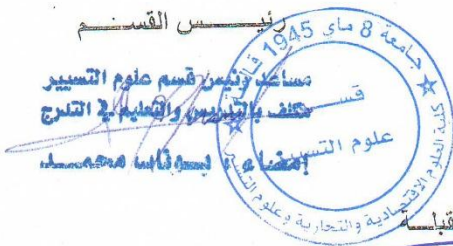 رئيس القسم
مساعد رئيس قسم علوم التسيير
مكلف بالتدريس والتعليم في التدرج
إمضاء : بوناب محمد
جامعة 8 ماي 1945 قالمة
كلية العلوم الاقتصادية والتجارية وعلوم التسيير
قسم
علوم التسيير